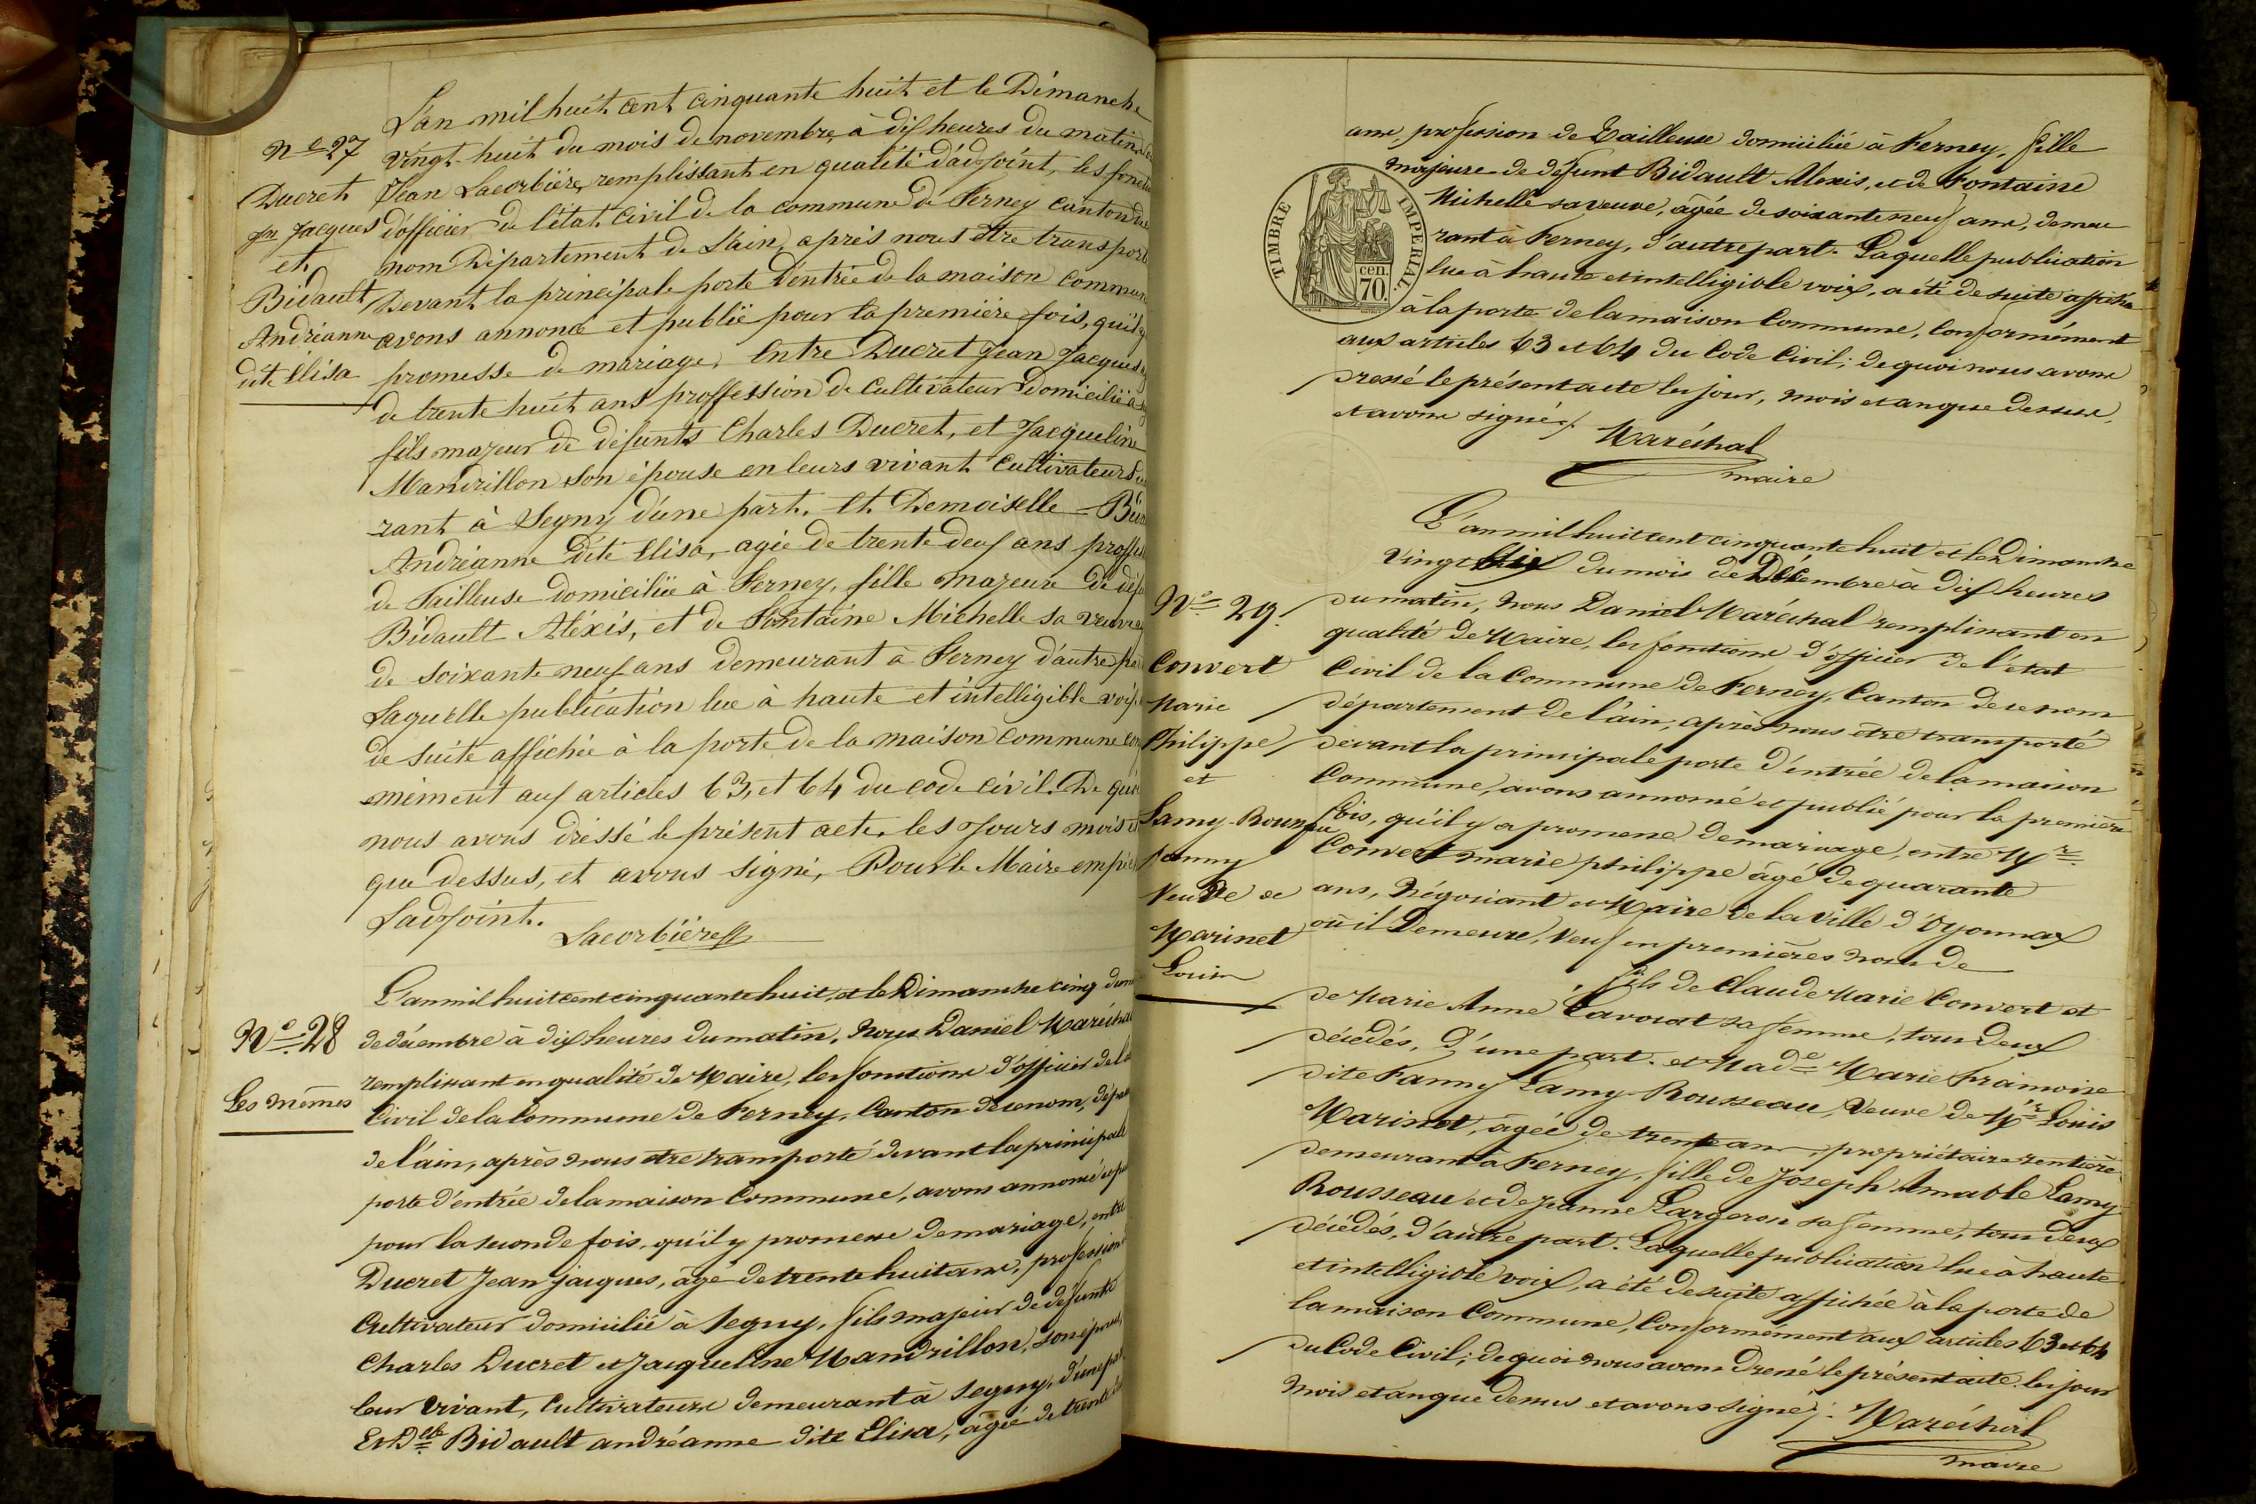 L'an mil huit cent cinquante huit et le Dimanche
N° 27
vingt-huit du mois de novembre, à dix heures du matin,
Ducret
Jean Lacorbière, remplissant en qualité d'adjoint, les
Jn Jacques
d'officier de l'état civil de la commune de Ferney canton
et
nom Département de L'ain, après nous être transporté
Bidault
Devant la principale porte d'entrée de la maison commune
Andréanne
avons annoncé et publié pour la première fois, qu'il y
dite Elisa
promesse de mariage, Entre Ducret Jean Jacques
de trente huit ans proffession de Cultivateur Domicilié à
fils majeur de défunts Charles Ducret, et Jacqueline
Mandrillon son épouse en leurs vivant Cultivateurs
rant à Segny d'une part. Et Demoiselle
Andréanne Dite Elisa, agée de trente deux ans
de Tailleuse domiciliée à Ferney, fille majeure de
Bidault Aléxis, et de Fontaine Michelle sa veuve
de soixante neuf ans demeurant à Ferney d'autre
Laquelle publication lue à haute et intelligible voix
de suite affichée à la porte de la maison commune
mément aux articles 63, et 64 du code civil. De quoi
nous avons dressé le présent acte, les Jours mois et
que dessus, et avons signé, Pour le Maire
Ladjoint.
Lacorbière
L'an mil huit cent cinquante huit, et le Dimanche cinq
N° 28
de décembre à dix heures du matin, Nous Daniel Maréchal
remplissant en qualité de Maire, les fonctions d'officier de
Les mêmes
Civil de la Commune de Ferney, Canton de ce nom,
de l'ain, après nous etre transporté devant la principale
porte d'entrée de la maison Commune, avons annoncé
pour la seconde fois, qu'il y promesse de mariage, entre
Ducret Jean jacques, âgé de trente huit ans, profession
Cultivateur domicilié à Segny, fils majeur de defunts
Charles Ducret et Jacqueline Mandrillon, son épouse,
leur vivant, Cultivateurs demeurant à Segny, d'une
Et Delle Bidault andréanne dite Elisa, âgée de trente
ans, profession de Tailleuse domiciliée à Ferney, fille
majeure de défunt Bidault Alexis, et de Fontaine
Michelle sa veuve, âgée de soixante neuf ans, demeu
rant à Ferney, d'autre part. Laquelle publication
lue à haute et intelligible voix, a été de suite affichée
à la porte de la maison Commune, Conformément
aux articles 63 et 64 du Code Civil; de quoi nous avons
dressé le présent acte les jour, mois et an que dessus,
et avons signé.
TIMBRE IMPERIAL
70 cen.
Maréchal
maire
L'an mil huit cent cinquante huit et le Dimanche
Vingt six du mois de Décembre à dix heures
N° 29.
du matin, nous Daniel Maréchal remplissant en
qualité de Maire, les fonctions d'officier de l'etat
Convert
Civil de la Commune de Ferney, Canton de ce nom
Marie
département de l'ain, après nous etre transporté
Philippe
devant la principale porte d'entrée de la maison
et
Commune, avons annoncé et publié pour la première
Lamy-Rousseau
fois, qu'il y a promesse de mariage, entre Mr
Fanny
Convert marie philippe âgé de quarante
Veuve de
ans, Négociant et Maire de la Ville d'Oyonnax
Marinet
où il Demeure, Veuf en premières noces de
Louis
fils de Claude Marie Convert et
de Marie Anne Savourat sa femme, tous deux
décédés, d'une part. et Made Marie Françoise
dite Fanny Lamy-Rousseau, Veuve de Mr Louis
Marinet, âgée de trente ans, propriétaire rentière
demeurant à Ferney, fille de Joseph Amable Lamy
Rousseau et de Jeanne Largeron sa femme, tous deux
décédés, d'autre part. Laquelle publication lue à haute
et intelligible voix, a été de suite affichée à la porte de
la maison Commune, Conformément aux articles 63 et 64
du Code Civil; de quoi nous avons dressé le présent acte les jour
mois et an que dessus et avons signé.
Maréchal
maire